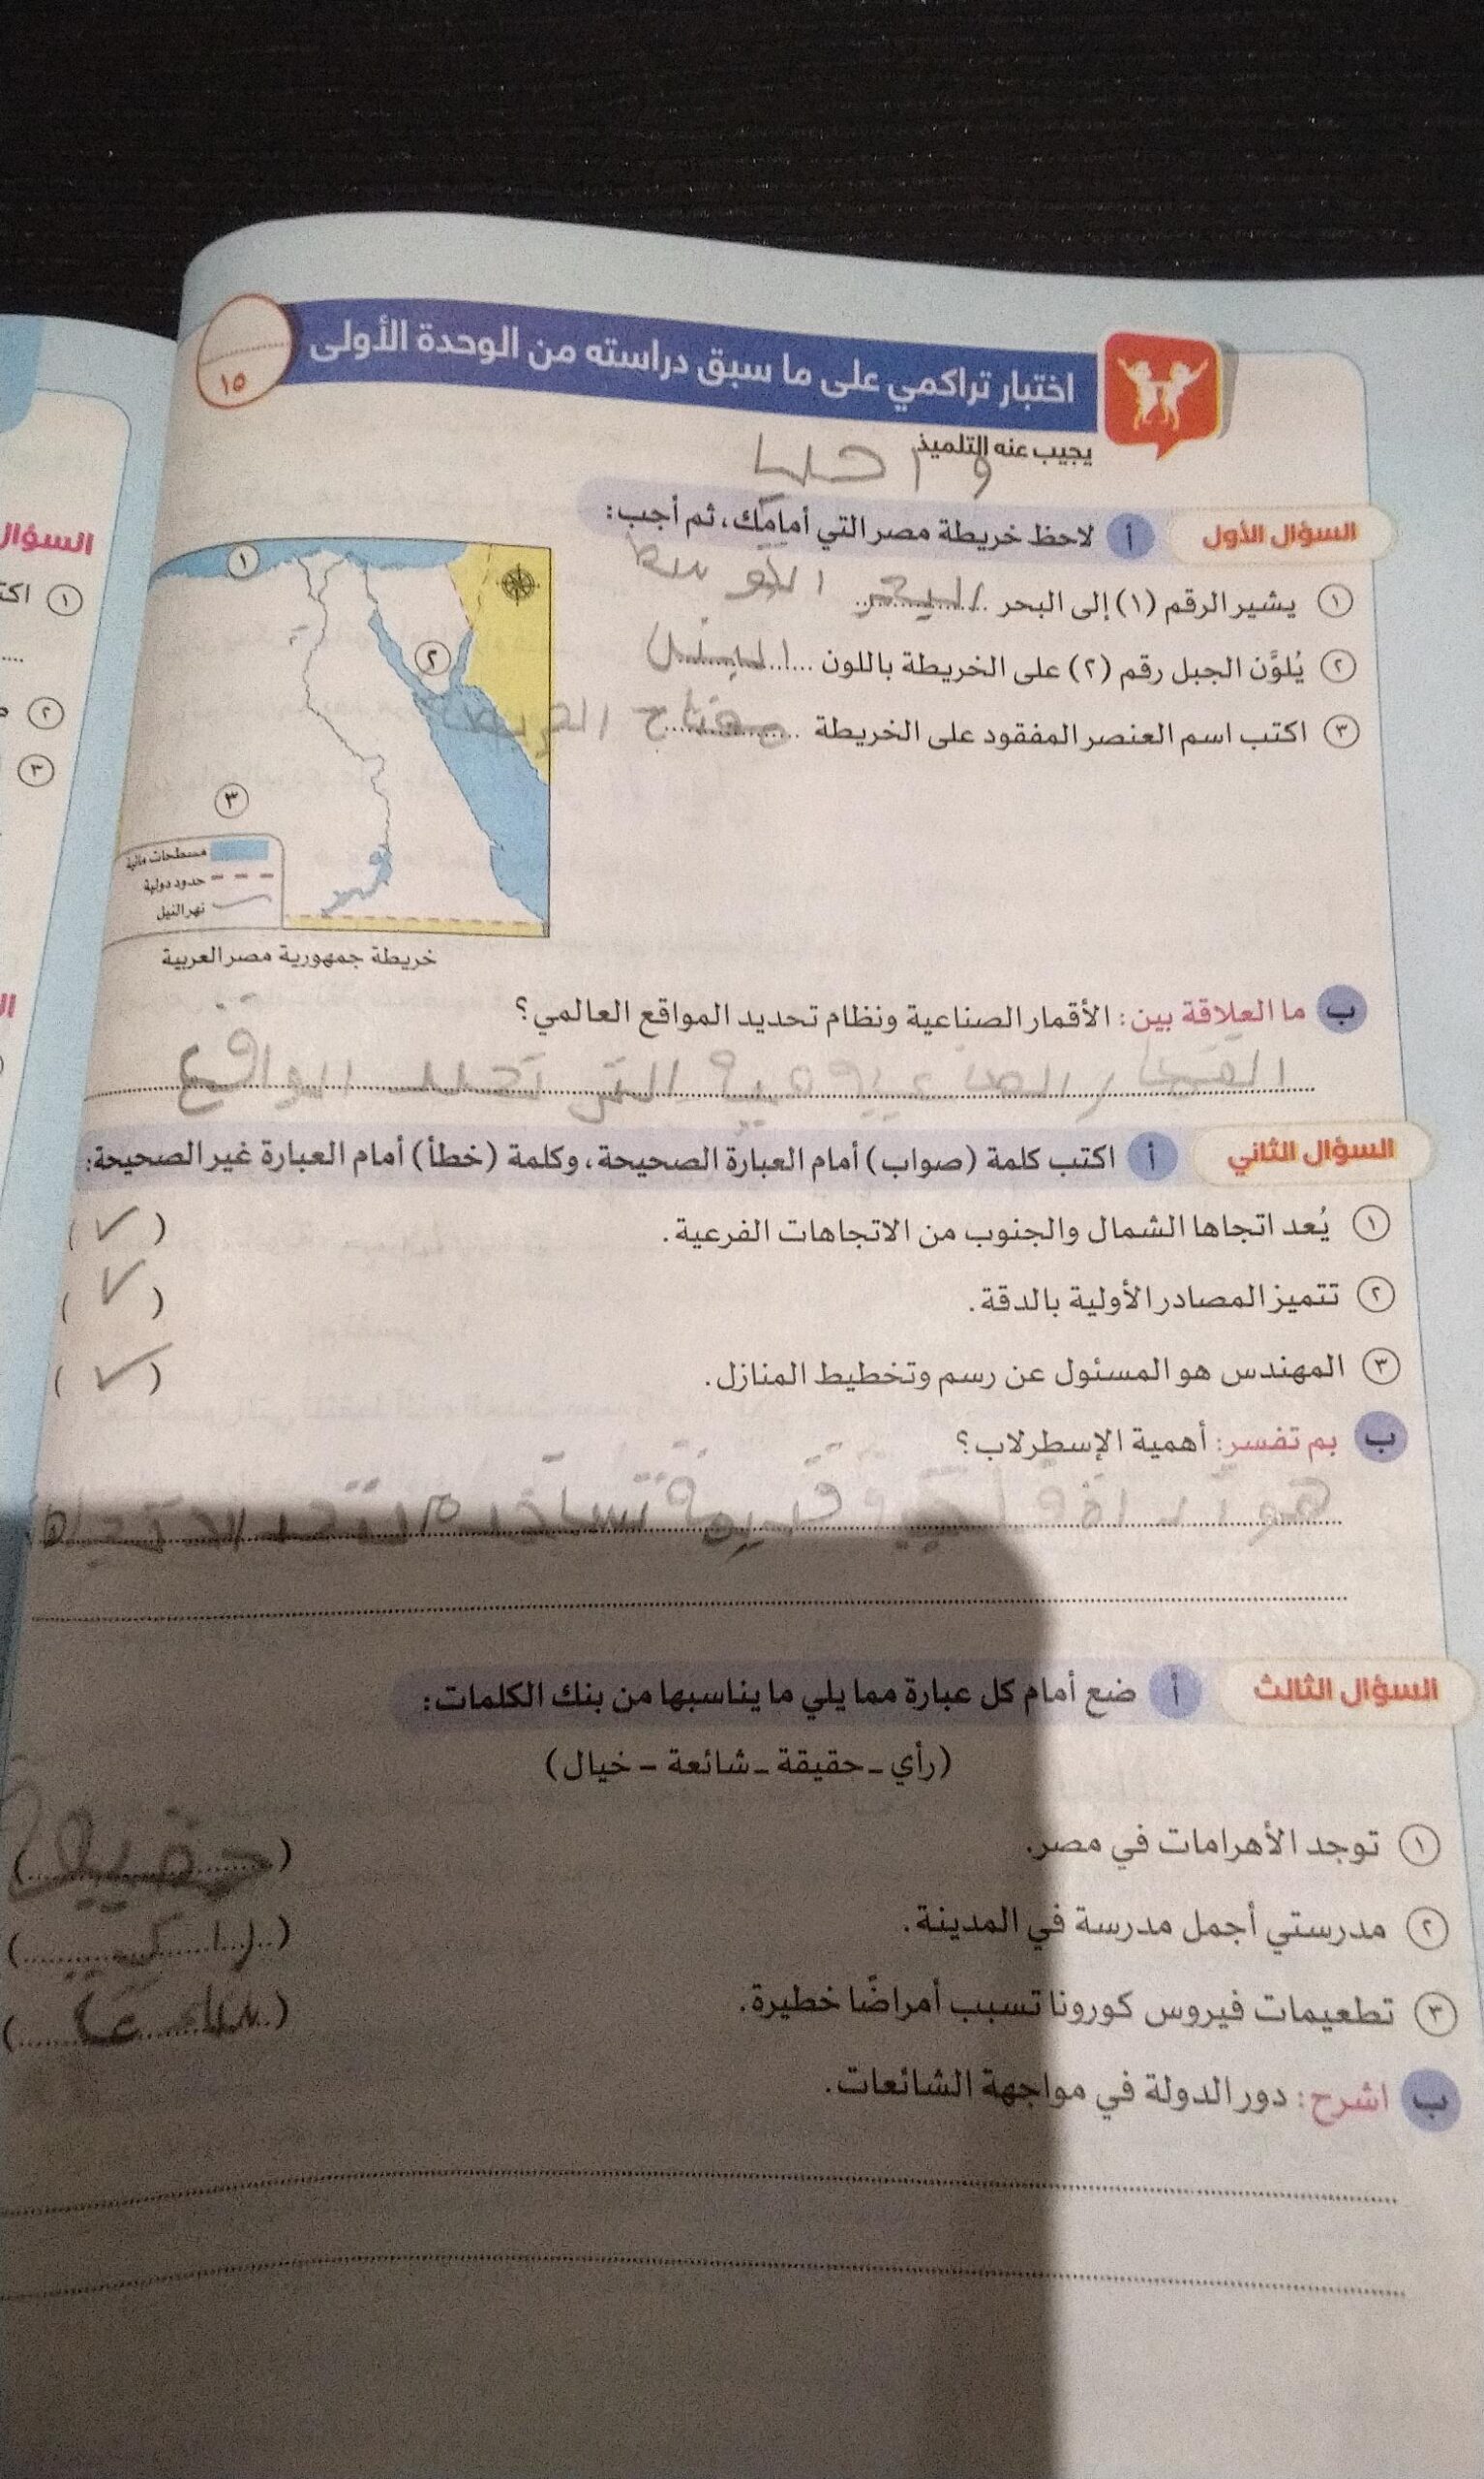 اختبار تراكمي على ما سبق دراسته من الوحدة الأولى
١٥
يجيب عنه التلميذ
السؤال الأول
أ لاحظ خريطة مصر التي أمامك، ثم أجب:
١ يشير الرقم (١) إلى البحر البحر
٢ يُلوَّن الجبل رقم (٢) على الخريطة باللون
٣ اكتب اسم العنصر المفقود على الخريطة مفتاح الخريطة
١
٢
٣
مسطحات مائية
حدود دولية
نهر النيل
خريطة جمهورية مصر العربية
ب ما العلاقة بين: الأقمار الصناعية ونظام تحديد المواقع العالمي؟
المواقع
السؤال الثاني
أ اكتب كلمة (صواب) أمام العبارة الصحيحة، وكلمة (خطأ) أمام العبارة غير الصحيحة:
١ يُعد اتجاها الشمال والجنوب من الاتجاهات الفرعية. (✓)
٢ تتميز المصادر الأولية بالدقة. (✓)
٣ المهندس هو المسئول عن رسم وتخطيط المنازل. (✓)
ب بم تفسر: أهمية الإسطرلاب؟
السؤال الثالث
أ ضع أمام كل عبارة مما يلي ما يناسبها من بنك الكلمات:
(رأي – حقيقة – شائعة – خيال)
١ توجد الأهرامات في مصر. (حقيقة)
٢ مدرستي أجمل مدرسة في المدينة.
٣ تطعيمات فيروس كورونا تسبب أمراضًا خطيرة.
ب اشرح: دور الدولة في مواجهة الشائعات.
السؤال
١ اكت
٢
٣